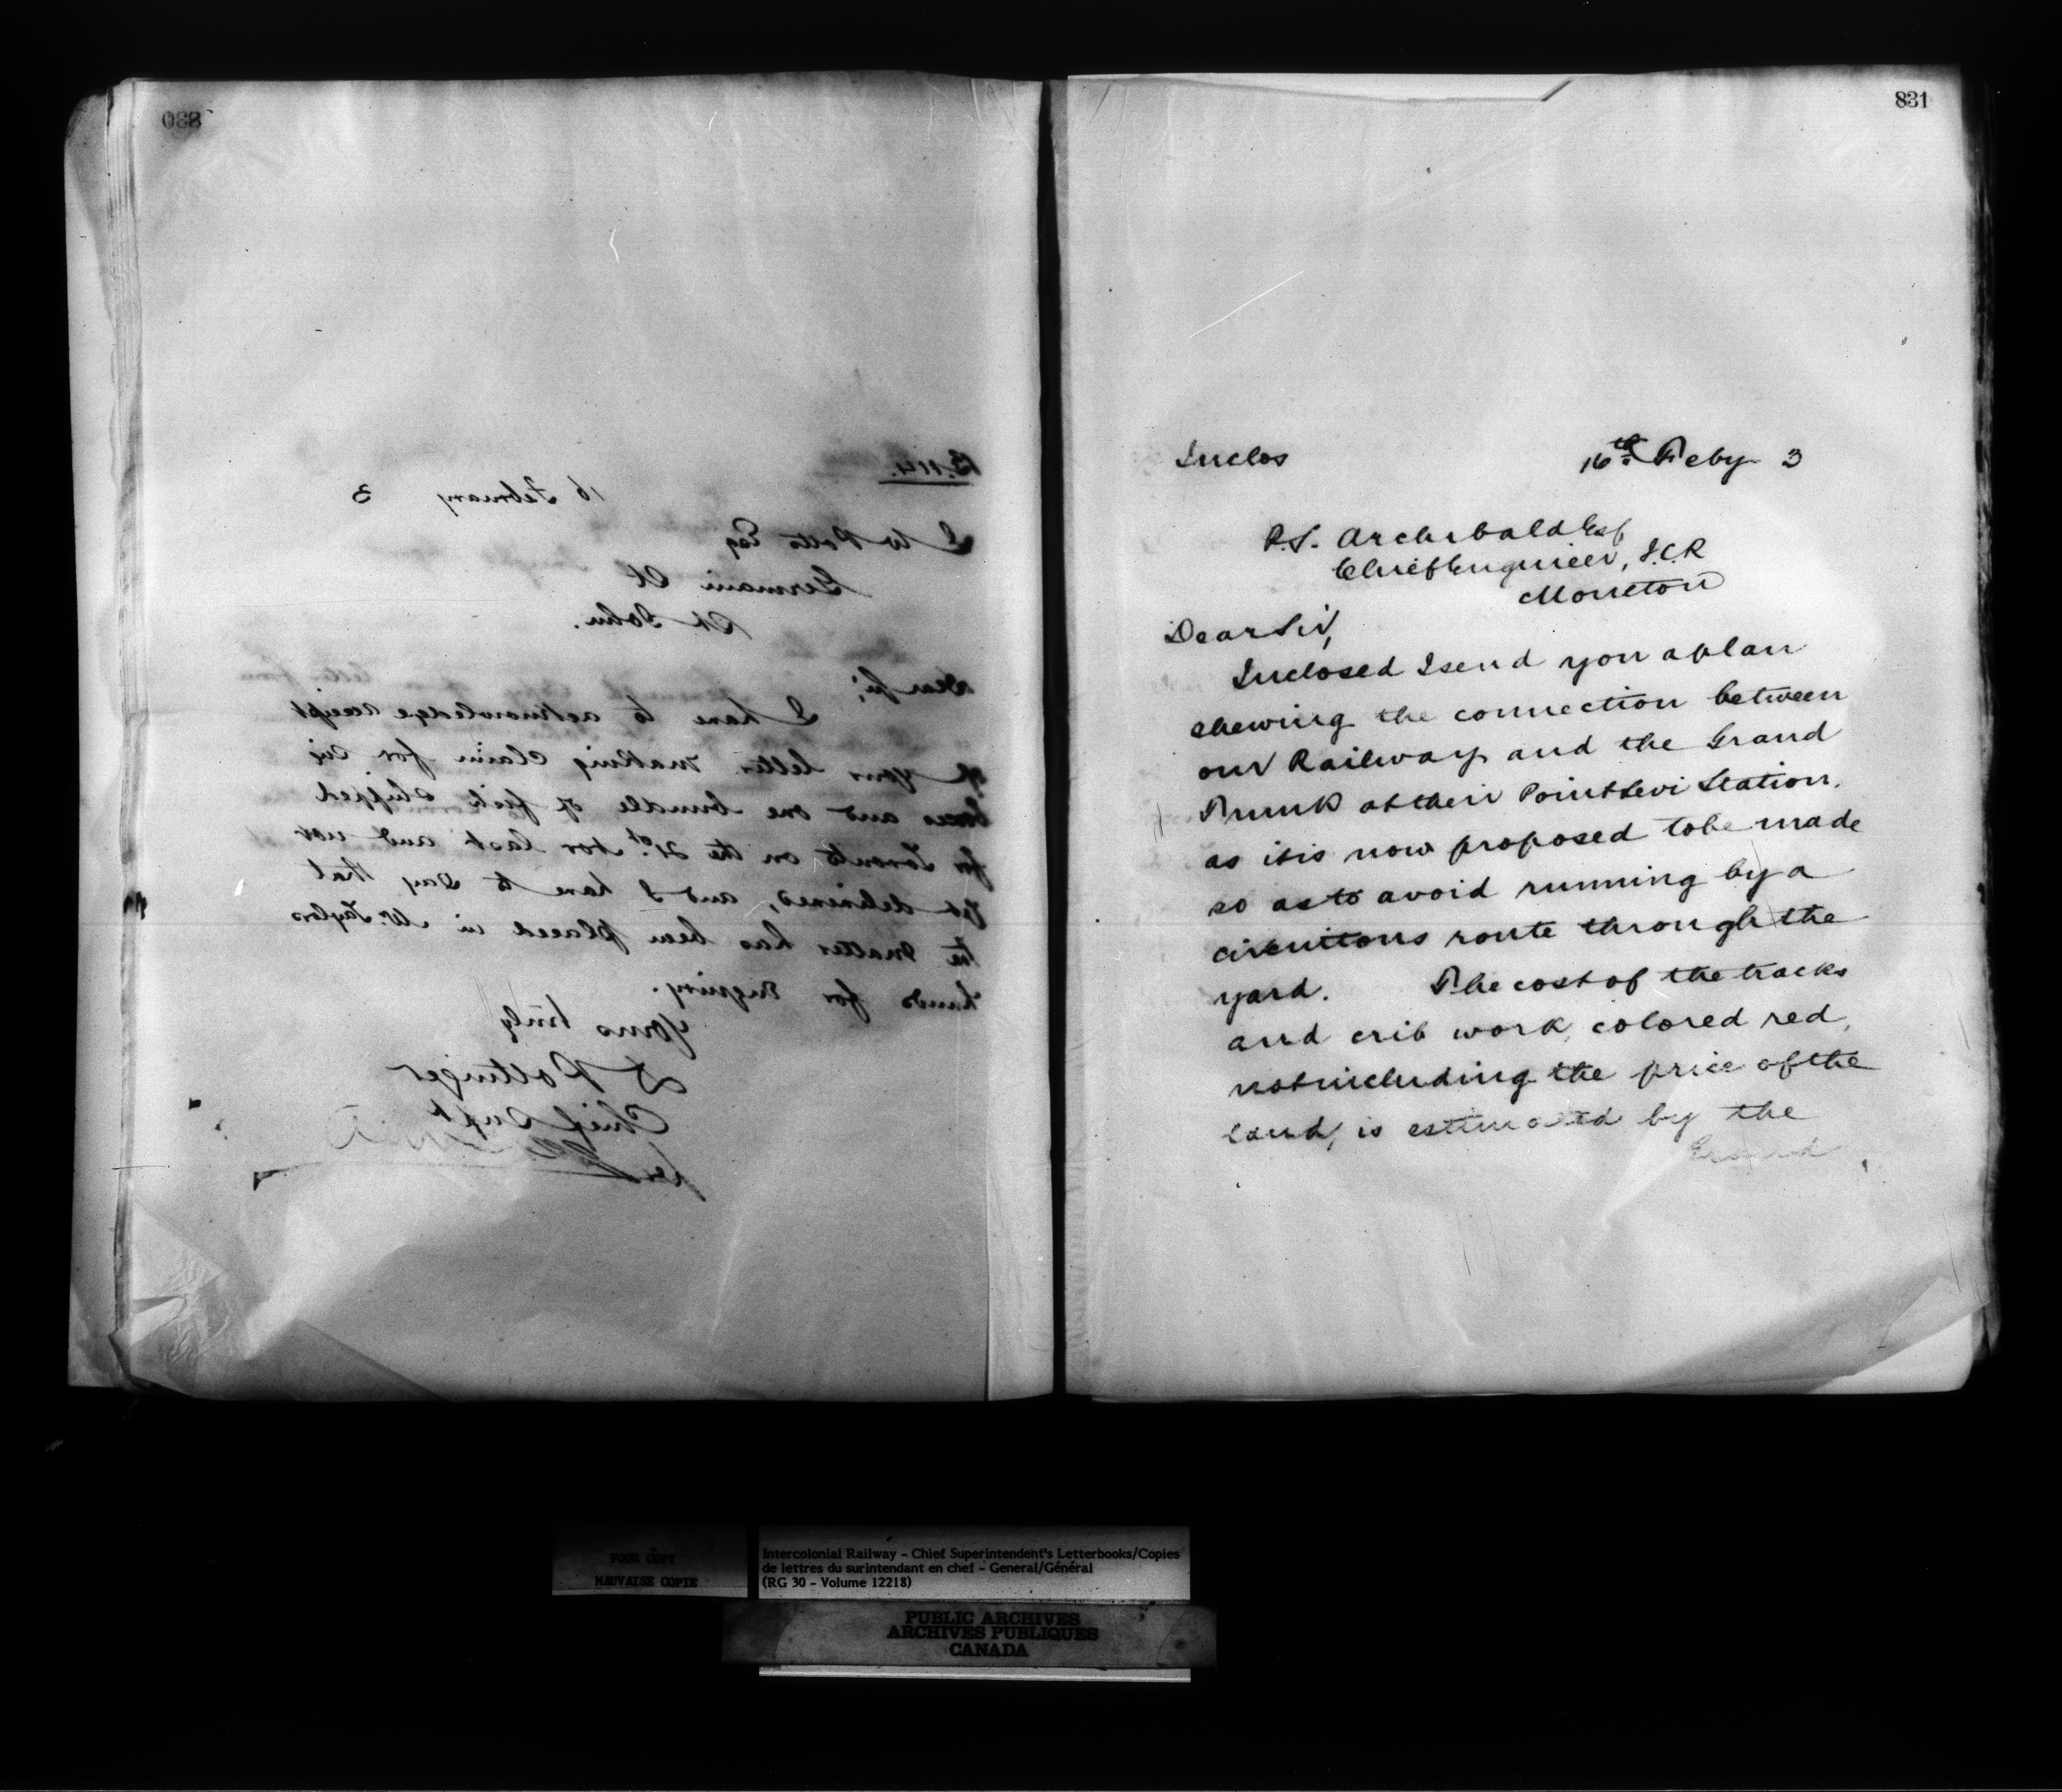 830
B.114.
16 February 3
J W Potts Esq
Germain St
St John.
Dear Sir;
I have to acknowledge receipt
of your letter making claim for six
boxes and one bundle of fish shipped
for Toronto on the 21st Nov last and not
yet delivered, and I have to say that
the matter has been placed in Mr. Taylors
hands for inquiry.
Yours truly
D Pottinger
Chief Supt
831
Inclos 16th Feby 3
P.S. Archibald Esq
Chief Engineer, I.C.R
Moncton
Dear Sir,
Inclosed I send you a plan
shewing the connection between
our Railway and the Grand
Trunk at their Point Levi Station.
as it is now proposed to be made
so as to avoid running by a
circuitous route through the
yard. The cost of the tracks
and crib work, colored red,
not including the price of the
land, is estimated by the
Grand
POOR COPY
MAUVAISE COPIE
Intercolonial Railway - Chief Superintendent's Letterbooks/Copies
de lettres du surintendant en chef - General/Général
(RG 30 - Volume 12218)
PUBLIC ARCHIVES
ARCHIVES PUBLIQUES
CANADA